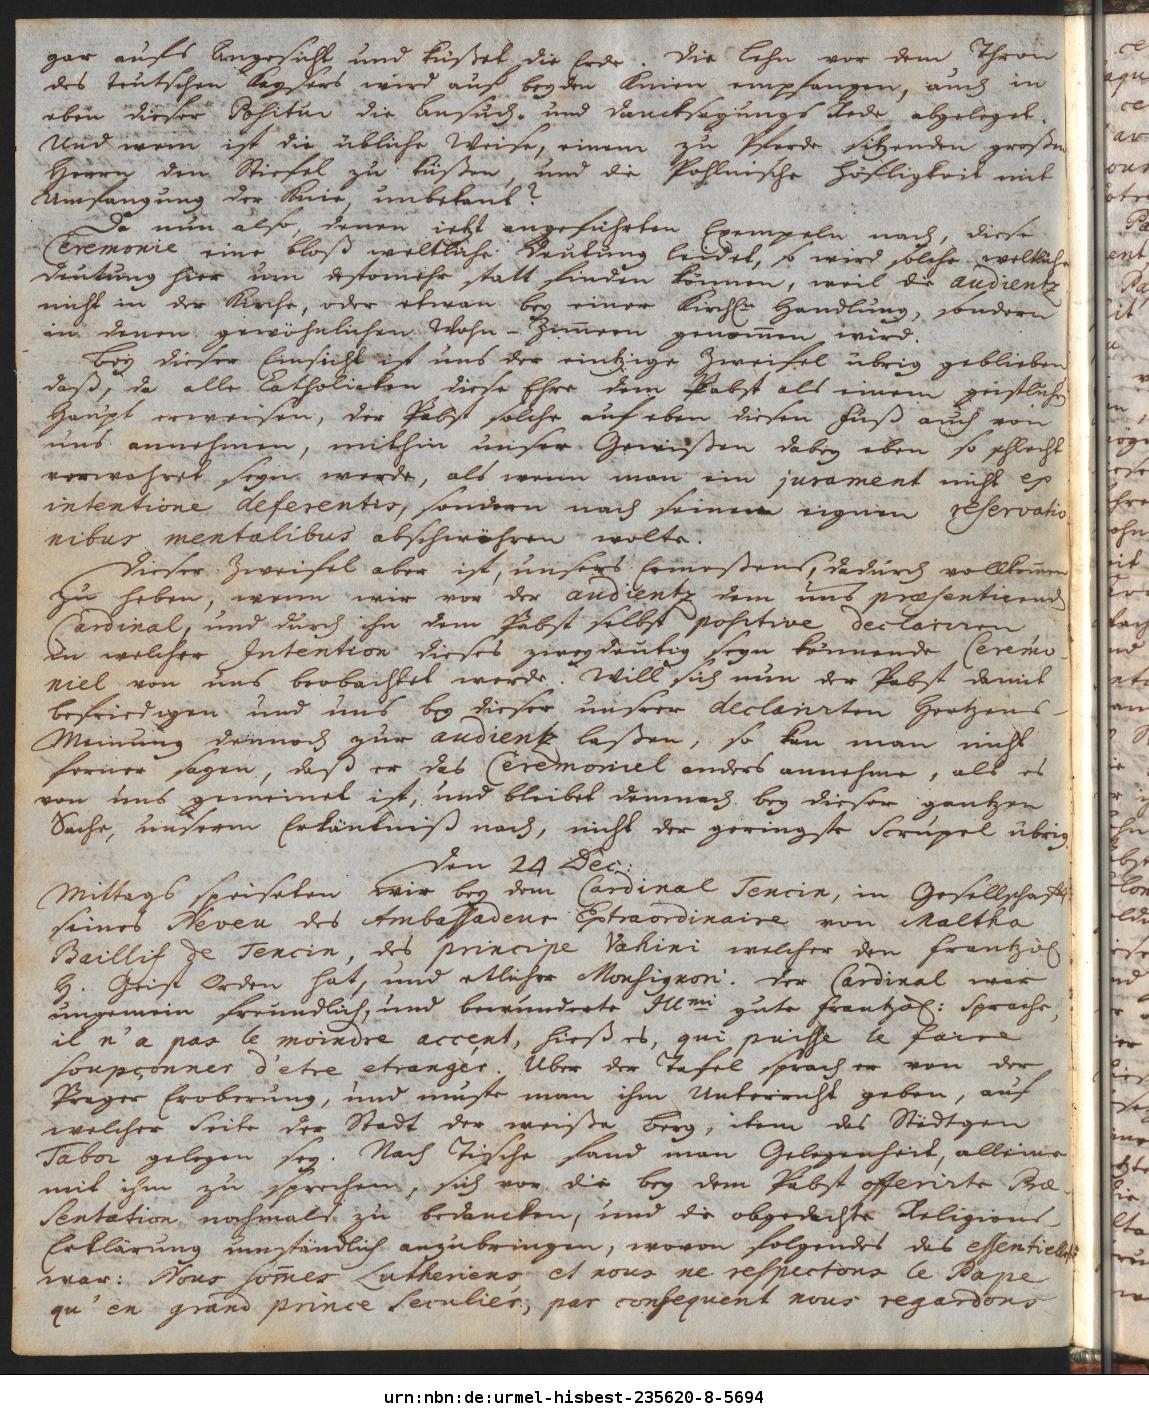 gar aufs Angesicht und küßet die Erde. Die Lehn vor dem Thron
des teutschen Kaysers wird auf beyden Knien empfangen, auch in
eben dieser Positur die Ansuch- und Dancksagungs Rede abgeleget.
Und wem ist die übliche Weise, einem zu Pferde sitzenden großen
Herrn den Stiefel zu küßen, und die Pohlnische Höfligkeit mit
Umfangung der Knie, unbekant?
Da nun also, denen ietzt angeführten Exempeln nach, diese
Ceremonie eine bloß weltliche Deutung leidet, so wird solche weltliche
Deutung hier um destomehr statt finden können, weil die audientz
nicht in der Kirche, oder etwan bey einer Kirchl. Handlung, sondern
in denen gewöhnlichen Wohn-Zim̄ern genom̄en wird.
Bey dieser Einsicht ist uns der eintzige Zweifel übrig geblieben
daß, da alle Catholicken diese Ehre dem Pabst als einem geistlichen
Haupt erweisen, der Pabst solche auf eben diesen Fuß auch von
uns annehmen, mithin unser Gewißen dabey eben so schlecht
verwahret seyn werde, als wenn man ein jurament nicht ex
intentione deferentis, sondern nach seinem eignen reservatio
nibus mentalibus abschwöhren wolte.
Dieser Zweifel aber ist, unsers Ermeßens, dadurch vollkom̄en
zu heben, wenn wir vor der audientz dem uns præsentirenden
Cardinal, und durch ihn dem Pabst selbst positive declariren
in welcher Intention dieses zweydeutig seyn könnende Ceremo-
niel von uns beobachtet werde. Will sich nun der Pabst damit
befriedigen und uns bey dieser unsrer declarirten Hertzens-
Meinung dennoch zur audientz laßen, so kan man nicht
ferner sagen, daß er das Ceremoniel anders annehme, als es
von uns gemeinet ist, und bleibet demnach bey dieser gantzen
Sache, unserm Erkäntniß nach, nicht der geringste Scrupel übrig.
den 24 Dec.
Mittags speiseten wir bey dem Cardinal Tencin, in Gesellschafft
seines Neveu des Ambassadeur Extraordinaire von Maltha
Baillif de Tencin, des principe Vahini welcher den Frantzös.
H. Geist Orden hat, und etlicher Monsignori. Der Cardinal war
ungemein freundlich, und bewunderte Illmi gute Frantzös: Sprache,
il n'a pas le moindre accent, hieß es, qui puisse le faire
soupçonner d'etre etranger. Uber der Tafel sprach er von der
Prager Eroberung, und muste man ihm Unterricht geben, auf
welcher Seite der Stadt der weiße Berg, item das Städtgen
Tabor gelegen sey. Nach Tische fand man Gelegenheit, alleine
mit ihm zu sprechen, sich vor die bey dem Pabst offerirte Præ-
sentation nochmals zu bedancken, und die obgedachte Religions-
Erklärung umständlich anzubringen, wovon folgendes das essentiellste
war: Nous som̄es Lutheriens et nous ne respectons le Pape
qu'en grand prince Seculier, par consequent nous regardons
urn:nbn:de:urmel-hisbest-235620-8-5694